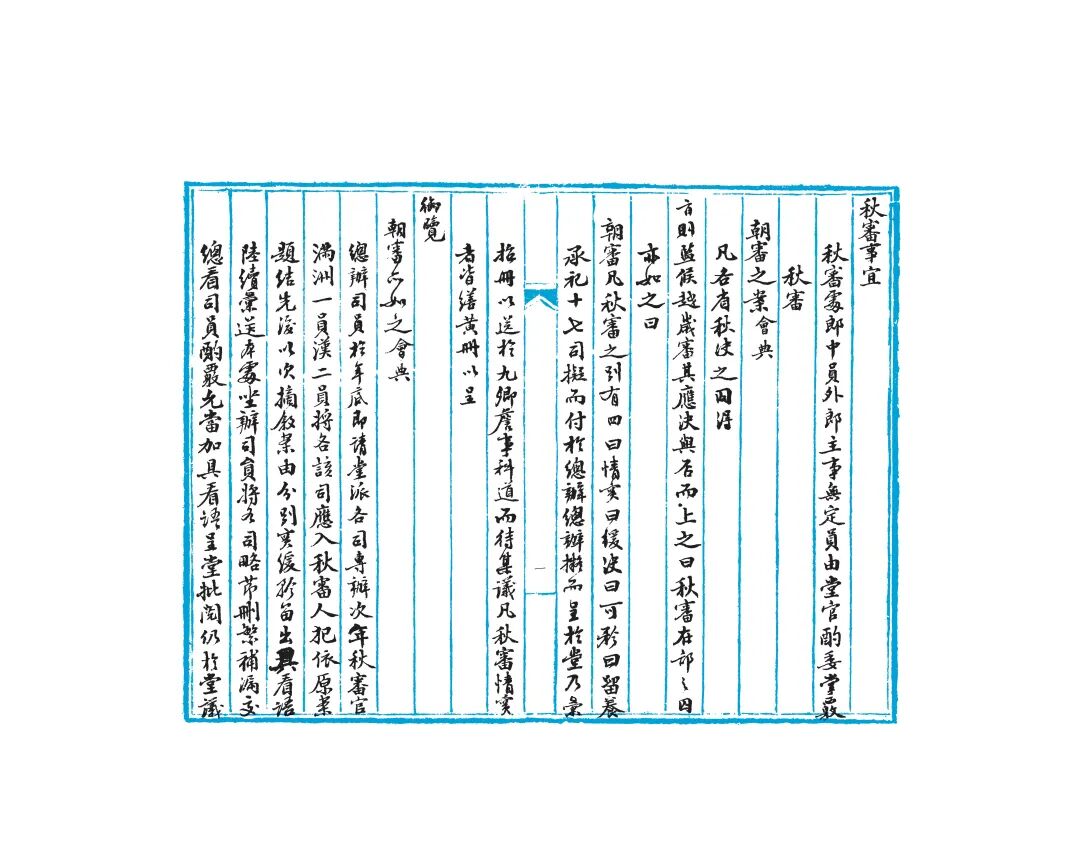 秋審事宜
秋審處郎中員外郎主事無定員由堂官酌委掌覈
秋審
朝審之案會典
凡各省秋決之囚得
旨則監候越歲審其應決與否而上之曰秋審在部之囚
亦如之曰
朝審凡秋審之別有四曰情實曰緩決曰可矜曰留養
承祀十七司擬而付於總辦總辦擬而呈於堂乃彙
招冊以送於九卿詹事科道而待集議凡秋審情實
者皆繕黃冊以呈
御覽
朝審亦如之會典
總辦司員於年底即請堂派各司專辦次年秋審官
滿洲一員漢二員將各該司應入秋審人犯依原案
題結先後以次摘敘案由分別實緩矜留出具看語
陸續彙送本處坐辦司員將各司略節刪繁補漏交
總看司員酌覈允當加具看語呈堂批閱仍於堂議
一